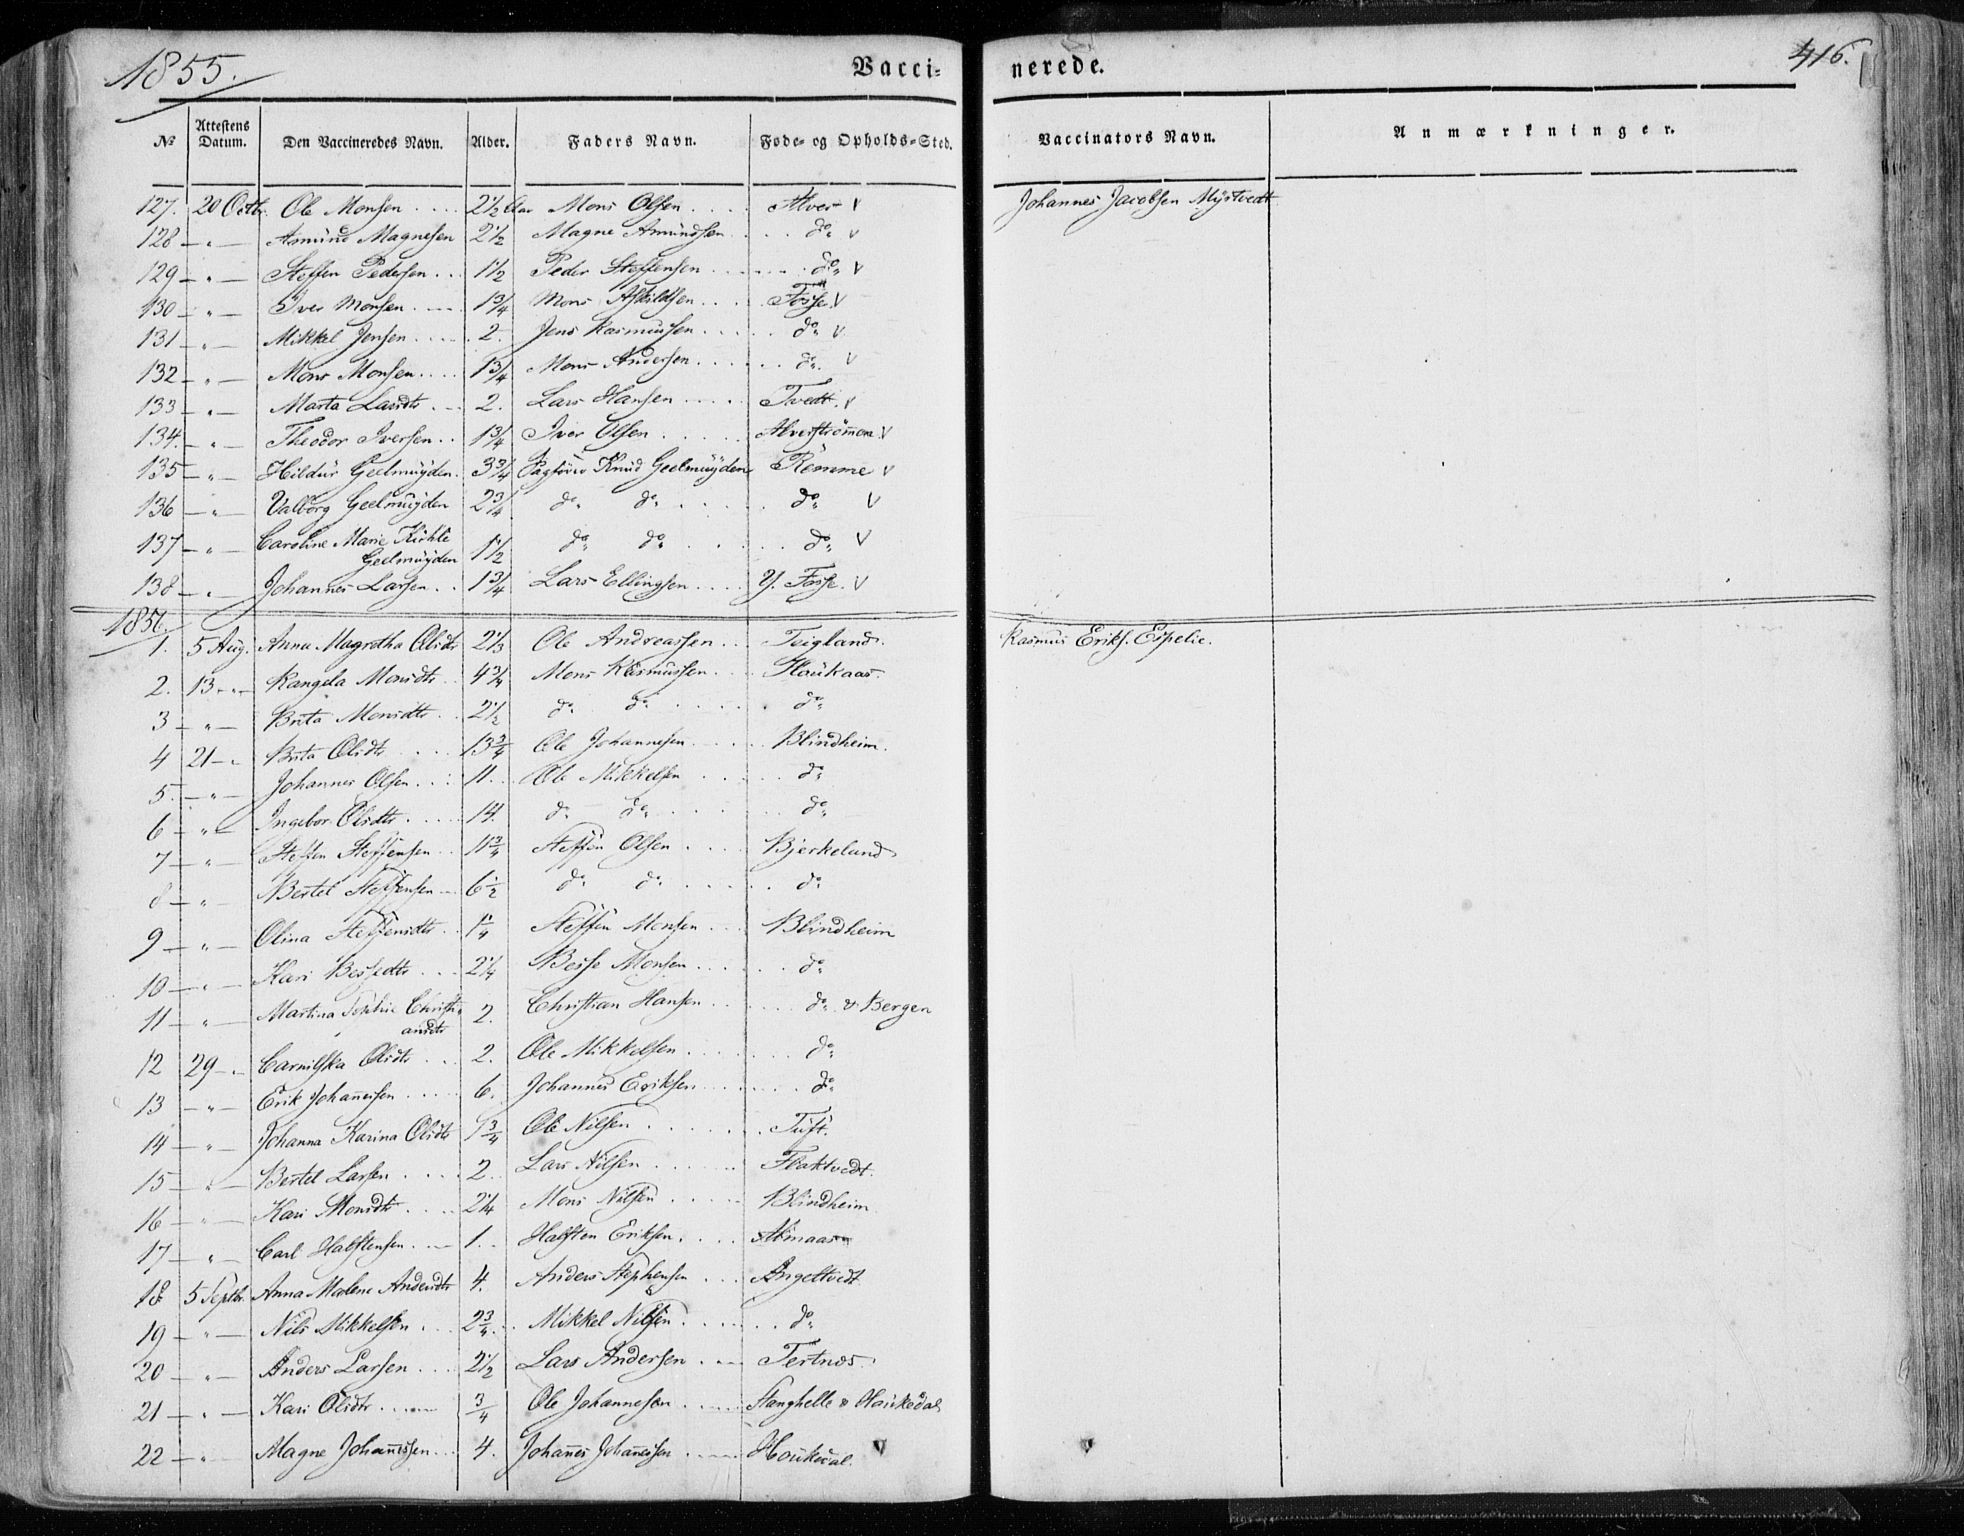 1855.
Vaccinerede.
416.
№ Attestens Datum. Den Vaccineredes Navn. Alder. Faders Navn. Føde- og Opholds-Sted. Vaccinators Navn. Anmærkninger.
127. 20 Octbr. Ole Monsen .... 2 1/2 Aar Mons Olsen .... Alver v Johannes Jacobsen Myrtvedt
128 - " - Asmund Magnesen 2 1/2 Magne Amundsen .... do. v
129 - " - Steffen Pedersen ... 1 1/2 Peder Steffensen .... do. v
130 - " - Iver Monsen .... 1 3/4 Mons Askildsen .... Fosse v
131 - " - Mikkel Jensen .... 2. Jens Rasmussen .... do. v
132 - " - Mons Monsen .... 1 3/4 Mons Andersen .... do. v
133 - " - Marta Larsdtr ... 2. Lars Hansen .... Tvedt. v
134. - " - Theodor Iversen .. 1 3/4 Iver Olsen .... Alverstrømen. v
135 - " - Hildur Geelmuyden. 3 3/4 Knud Geelmuyden Remme v
136 - " - Valborg Geelmuyden 2 3/4 do. do. .... do. v
137 - " - Caroline Marie
Geelmuyden 1 1/2 do. do. .... do. v
138 - " - Johannes Larsen .. 1 3/4 Lars Ellingsen .... Y. Fosse. v
1. 5 Aug. Anna Magretha Olsdtr 2 1/3 Ole Andreassen ... Teigland. Rasmus Eriks. Espelie.
2. 13 - " - Rangela Monsdtr 4 3/4 Mons Rasmussen ... Houkaas.
3 - " - Brita Monsdtr .. 2 1/2 do. do. .... do.
4 21 - " Brita Olsdtr .... 13 3/4 Ole Johannesen .... Blindheim.
5. - " - Johannes Olsen ... 11. Ole Mikkelsen .... do.
6 - " - Ingebor Olsdtr .... 14. do. do. .... do.
7 - " - Steffen Steffensen .. 11 3/4 Steffen Olsen .... Bjerkeland
8 - " - Bertel Steffensen - 6 1/2 do. do. .... do.
9 - " - Olina Steffensdtr .. 1 1/4 Steffen Monsen ... Blindheim
10 - " - Kari Bessedtr ... 2 1/4 Besse Monsen .... do.
11 - " - Martina Sophie Christi-
ansdtr 2. Christian Hansen .... do. & Bergen
12 29 - " - Olsdtr ... 2. Ole Mikkelsen .... do.
13 - " - Erik Johanesen .... 6. Johannes Eriksen .... do.
14 - " - Johanna Karina Olsdtr 1 3/4 Ole Nilsen .... Tuft.
15 - " - Bertel Larsen .... 2. Lars Nilsen .... Flaktvedt.
16 - " - Kari Monsdtr .... 2 1/4 Mons Nilsen .... Blindheim
17 - " - Carl Halstensen ... 1. Halsten Eriksen .... Almaas
18 5 Septbr. Anna Malene Andersdtr 4. Anders Stephensen ... Angeltvedt
19 - " - Nils Mikkelsen ... 2 3/4 Mikkel Nilsen .... do.
20 - " - Anders Larsen ... 2 1/2 Lars Andersen ... Tertnæs.
21 - " - Kari Olsdtr .... 3/4 Ole Johannesen .... Stanghelle & Haukedal
22 - " - Magne Johanessen ... 4. Johanes Johanessen .... Houkedal.